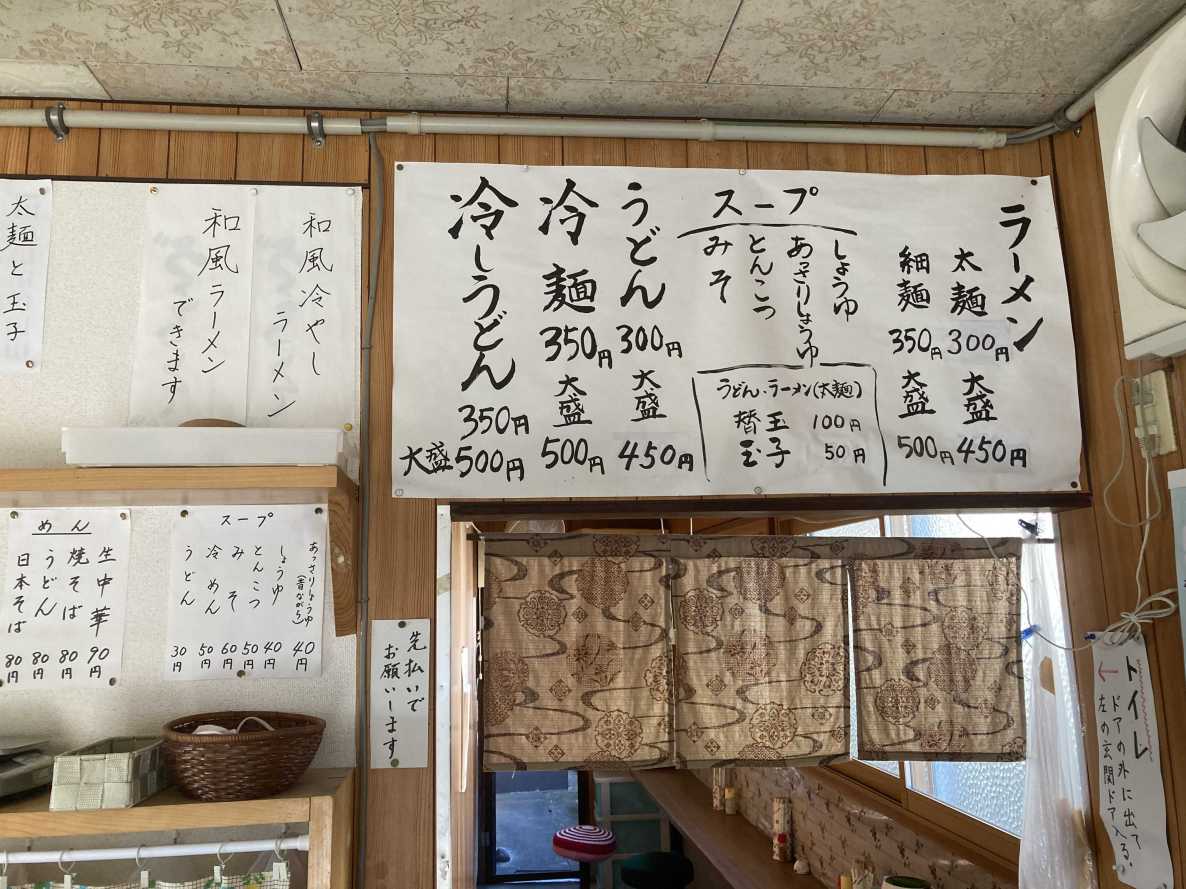 ラーメン
太麺 300円 大盛 450円
細麺 350円 大盛 500円
スープ
しょうゆ
あっさりしょうゆ
とんこつ
みそ
うどん、ラーメン(太麺)
替玉 100円
玉子 50円
うどん 300円 大盛 450円
冷麺 350円 大盛 500円
冷しうどん 350円
大盛 500円
和風冷やし
ラーメン
和風ラーメン
できます
太麺と玉子
スープ
あっさりしょうゆ(昔ながら) 40円
しょうゆ 40円
とんこつ 50円
みそ 60円
冷めん 50円
うどん 30円
めん
生中華 90円
焼そば 80円
うどん 80円
日本そば 80円
先払いで
お願いします
トイレ
←
ドアの外に出て
左の玄関ドア入る。